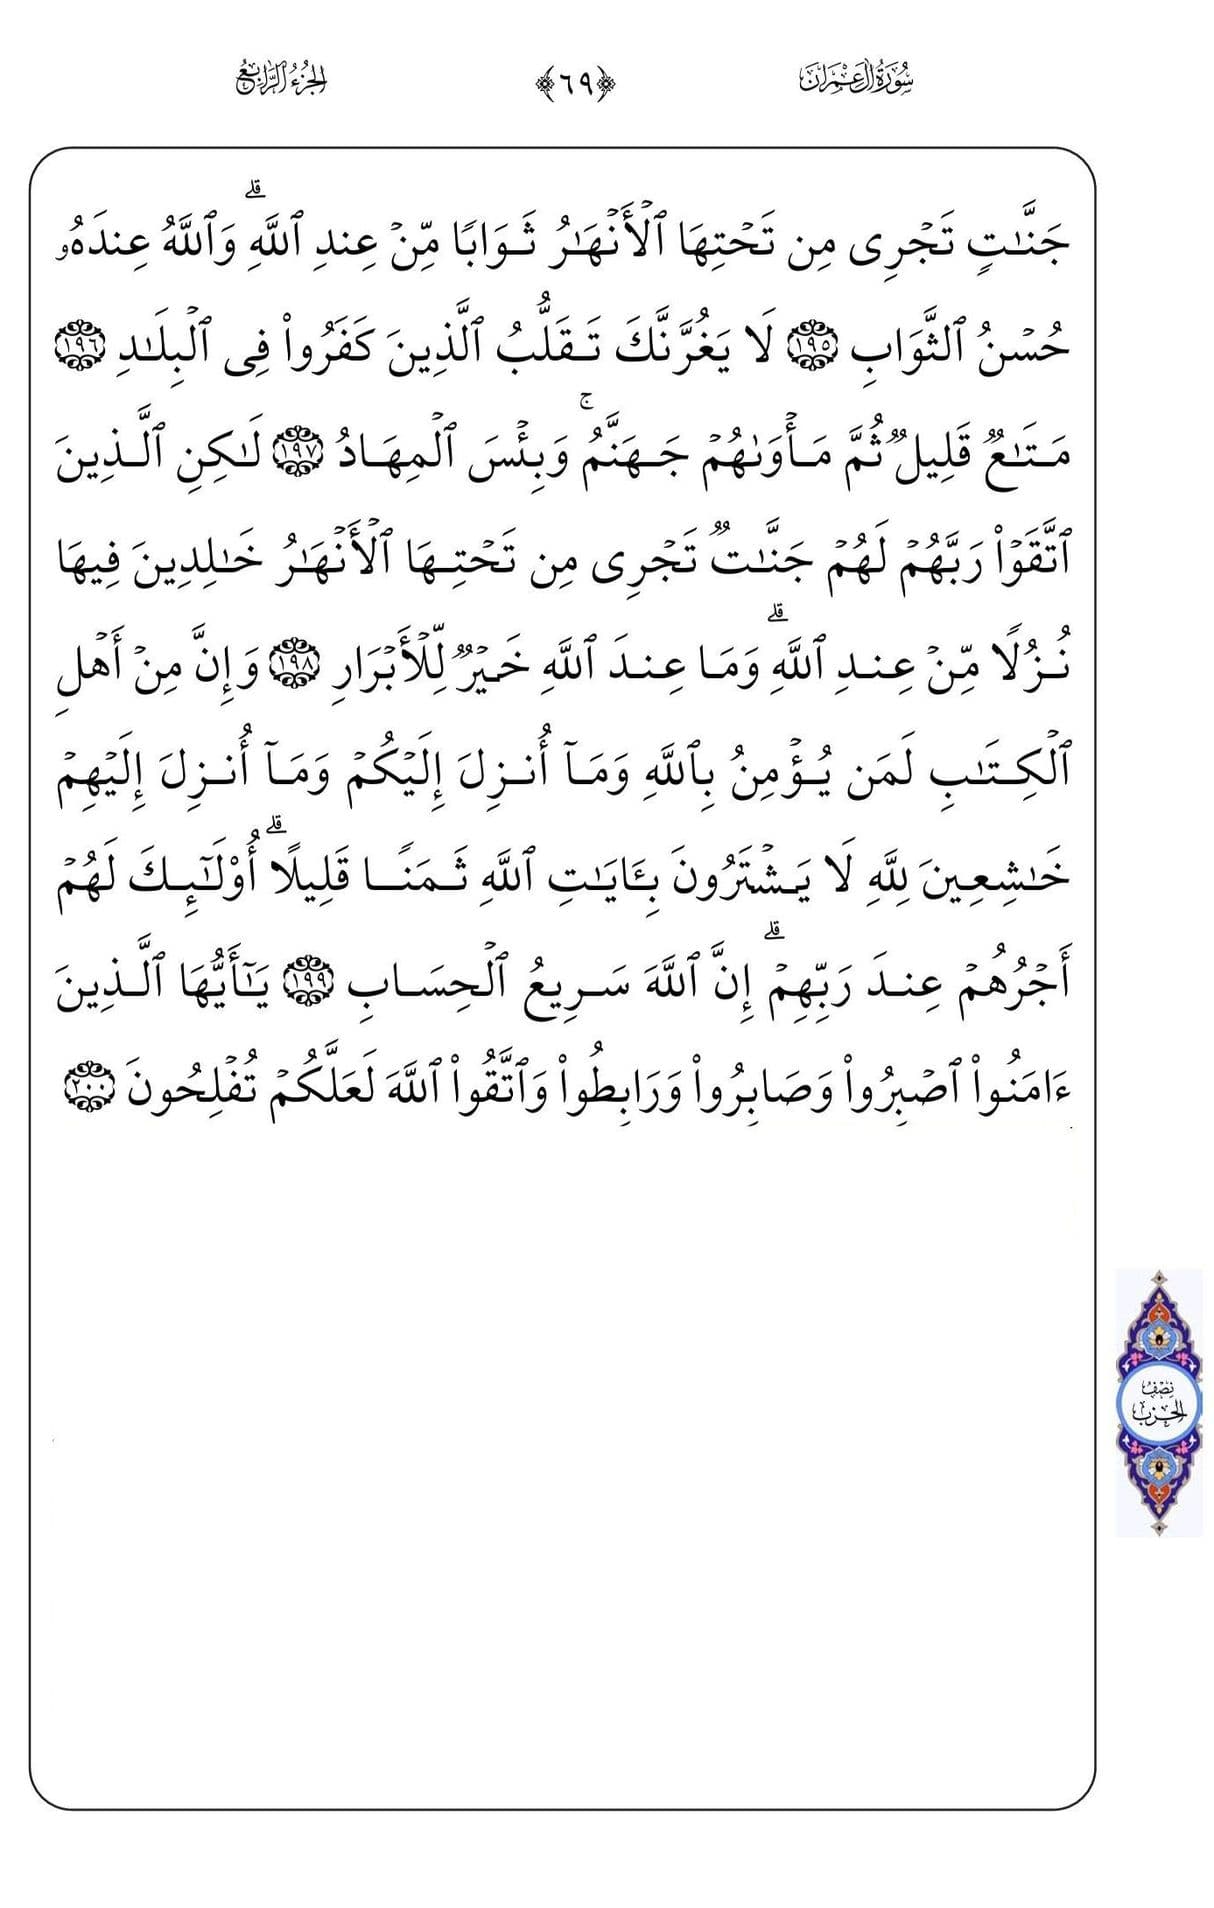 سُورَةُ آلِ عِمْرَانَ
﴿٦٩﴾
الجُزْءُ الرَّابِعُ
جَنَّـٰتٍ تَجْرِى مِن تَحْتِهَا ٱلْأَنْهَـٰرُ ثَوَابًا مِّنْ عِندِ ٱللَّهِ ۗ وَٱللَّهُ عِندَهُۥ
حُسْنُ ٱلثَّوَابِ ١٩٥ لَا يَغُرَّنَّكَ تَقَلُّبُ ٱلَّذِينَ كَفَرُوا۟ فِى ٱلْبِلَـٰدِ ١٩٦
مَتَـٰعٌ قَلِيلٌ ثُمَّ مَأْوَىٰهُمْ جَهَنَّمُ ۚ وَبِئْسَ ٱلْمِهَادُ ١٩٧ لَـٰكِنِ ٱلَّذِينَ
ٱتَّقَوْا۟ رَبَّهُمْ لَهُمْ جَنَّـٰتٌ تَجْرِى مِن تَحْتِهَا ٱلْأَنْهَـٰرُ خَـٰلِدِينَ فِيهَا
نُزُلًا مِّنْ عِندِ ٱللَّهِ ۗ وَمَا عِندَ ٱللَّهِ خَيْرٌ لِّلْأَبْرَارِ ١٩٨ وَإِنَّ مِنْ أَهْلِ
ٱلْكِتَـٰبِ لَمَن يُؤْمِنُ بِٱللَّهِ وَمَآ أُنزِلَ إِلَيْكُمْ وَمَآ أُنزِلَ إِلَيْهِمْ
خَـٰشِعِينَ لِلَّهِ لَا يَشْتَرُونَ بِـَٔايَـٰتِ ٱللَّهِ ثَمَنًا قَلِيلًا ۗ أُو۟لَـٰٓئِكَ لَهُمْ
أَجْرُهُمْ عِندَ رَبِّهِمْ ۗ إِنَّ ٱللَّهَ سَرِيعُ ٱلْحِسَابِ ١٩٩ يَـٰٓأَيُّهَا ٱلَّذِينَ
ءَامَنُوا۟ ٱصْبِرُوا۟ وَصَابِرُوا۟ وَرَابِطُوا۟ وَٱتَّقُوا۟ ٱللَّهَ لَعَلَّكُمْ تُفْلِحُونَ ٢٠٠
نِصْفُ
الحِزْبِ